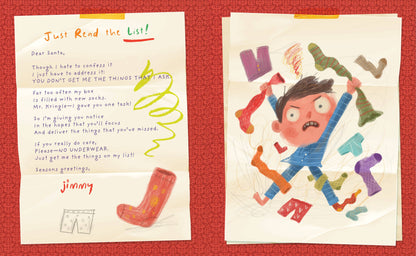 Just Read the List!
Dear Santa,
Though I hate to confess it
I just have to address it:
YOU DON'T GET ME THE THINGS THAT I ASK.
Far too often my box
Is filled with new socks.
Mr. Kringle—I gave you one task!
So I'm giving you notice
In the hopes that you'll focus
And deliver the things that you've missed.
If you really do care,
Please—NO UNDERWEAR.
Just get me the things on my list!
Seasons greetings,
jimmy